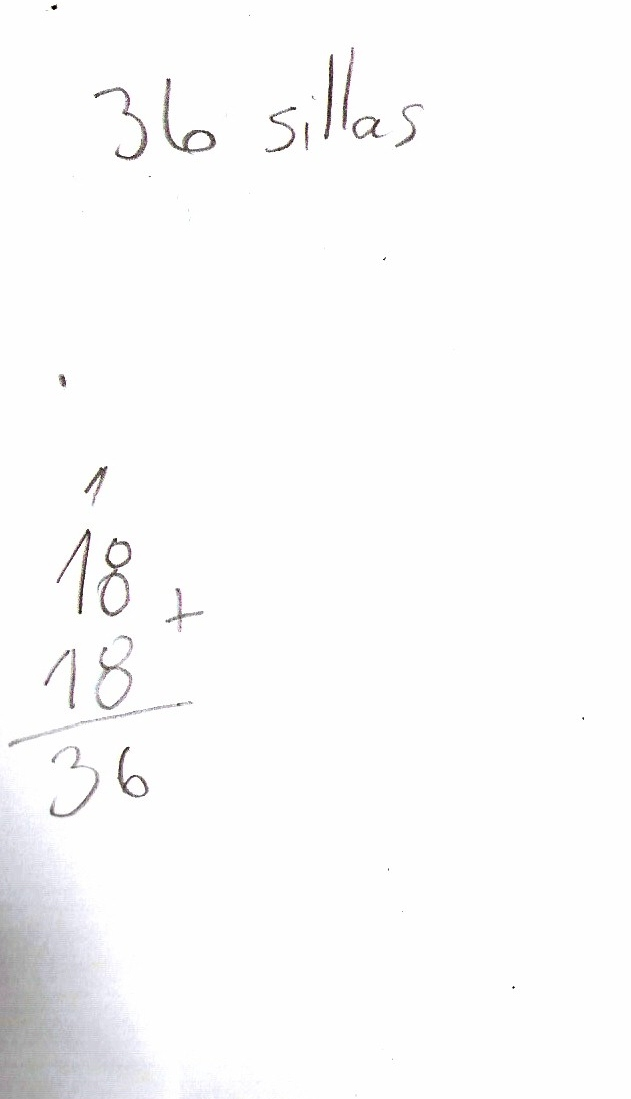 36 sillas
1
18 +
18
36